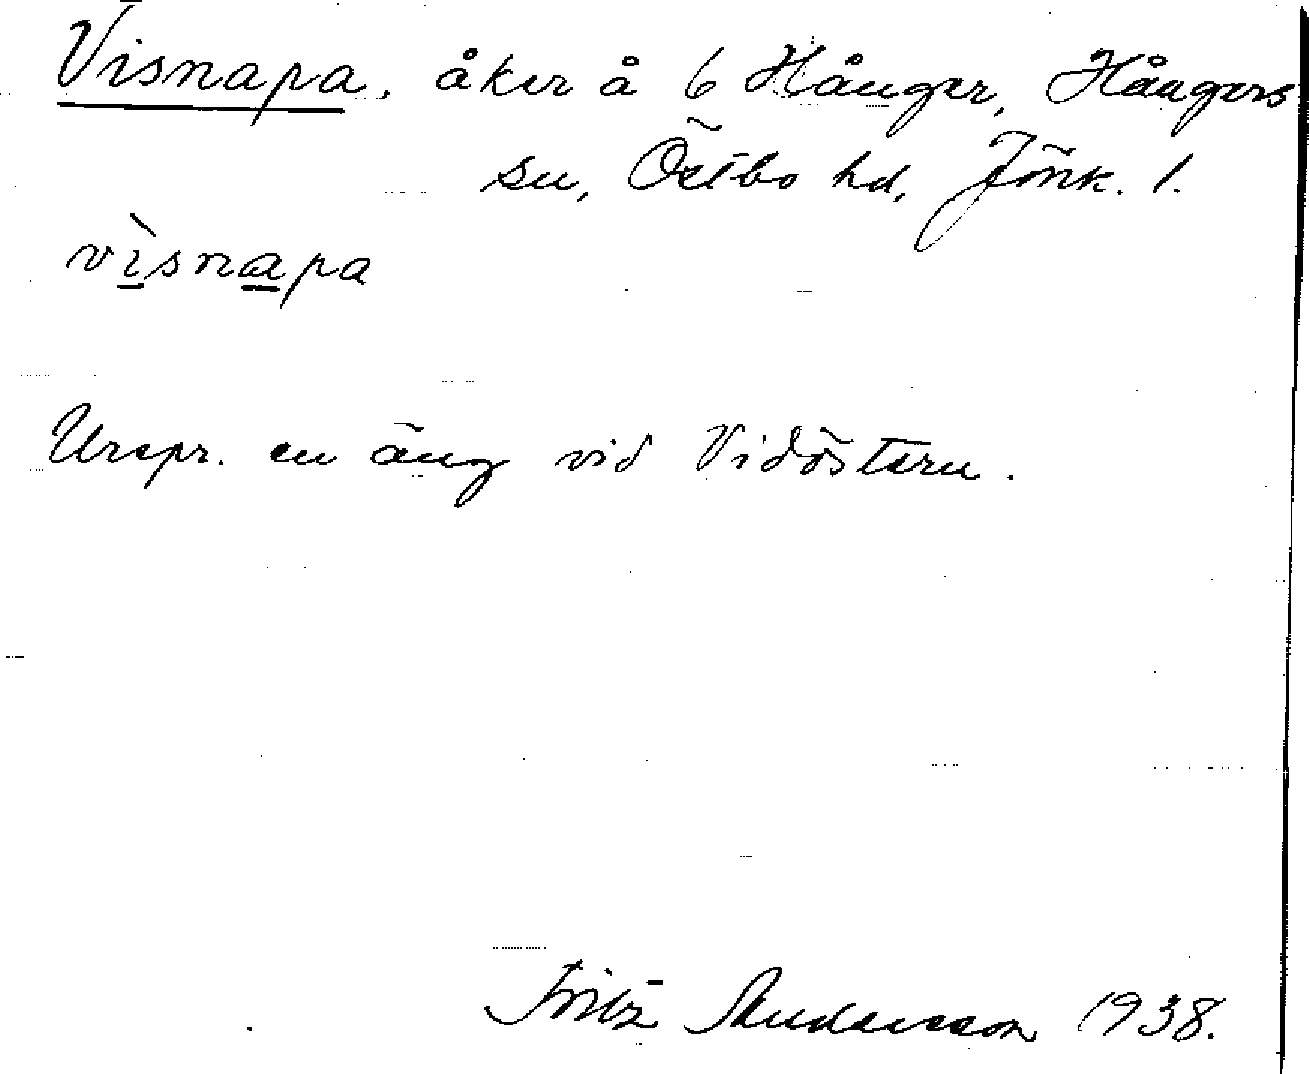 Visnapa, åker å 6 Hånger, Hångers
sn, Östbo hd, Jönk. l.
vìsnapa
Urspr. en äng vid Vidöstern.
Fritz Andersson 1938.